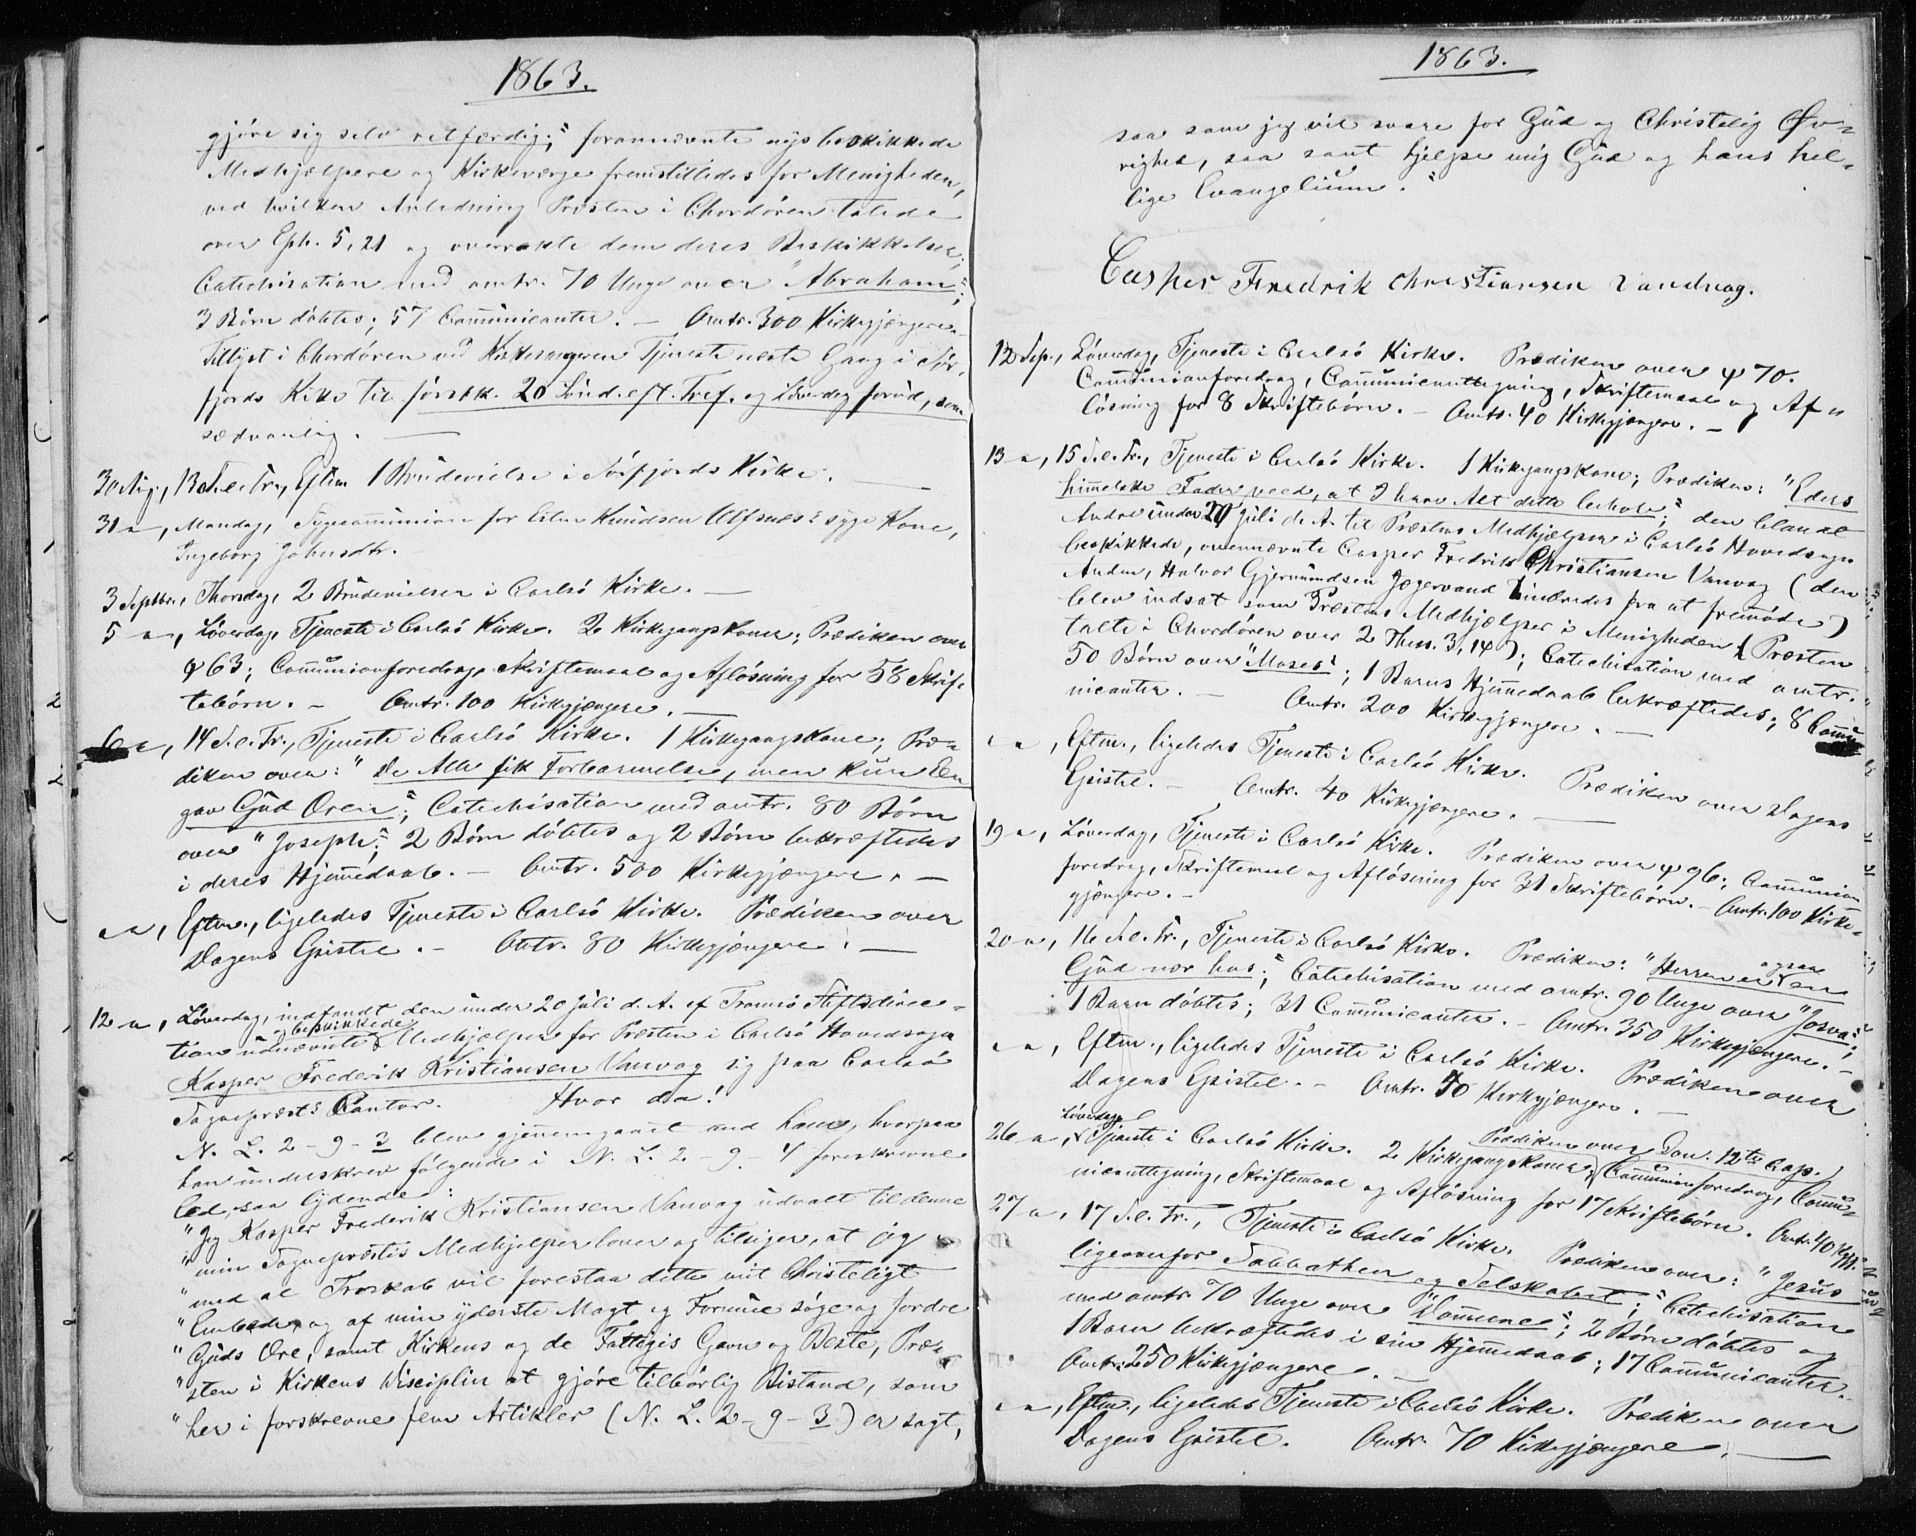 1863.
gjöre sig selv retfærdig;" forannævnte nys beskikkede
Medhjælpere og Kirkeværge fremstilledes for Menigheden,
ved hvilken Anledning Præsten i Chordören talede
over Eph. 5,21 og overrakte dem deres Beskikkelser;
Catechisation med omtr. 70 Unge over "Abraham";
3 Börn döbtes; 57 Communicanter. — Omtr. 300 Kirkegjængere.
Tillyst i Chordören ved Kirkesangeren Tjeneste næste Gang i Sör-
fjords Kirke til förstk. 20 Sönd. eft. Tref. og Löverdag forud, som
sædvanlig. —
30 Aug., 13 S. e. Tr., Eftm. 1 Brudevielse i Sörfjords Kirke. —
31 —, Mandag, Sygecommunion for Knudsen Ulfsnes's syge Kone,
Ingeborg Johnsdtr.
3 Septbr., Thorsdag, 2 Brudevielser i Carlsö Kirke. —
5 —, Löverdag, Tjeneste i Carlsö Kirke. 2 Kirkegangskoner; Prædiken over
ψ 63; Communionforedrag, Skriftemaal og Aflösning for 58 Skrif-
tebörn. — Omtr. 100 Kirkegjængere. —
6 —, 14 S. e. Tr., Tjeneste i Carlsö Kirke. 1 Kirkegangskone; Præ-
diken over: "De Alle fik Forbarmelse, men kun Een
gav Gud Æren"; Catechisation med omtr. 80 Börn
over "Joseph"; 2 Börn döbtes og 2 Börn bekræftedes
i deres Hjemmedaab. — Omtr. 500 Kirkegjængere. —
— —, Eftm., ligeledes Tjeneste i Carlsö Kirke. Prædiken over
Dagens Epistel. — Omtr. 80 Kirkegjængere. —
12 —, Löverdag, indfandt den under 20 Juli d. A. af Tromsö Stiftsdirec-
og beskikkede
tion udnævnte Medhjælper for Præsten i Carlsö Hovedsogn
Kasper Frederik Kristiansen Vanvag sig paa Carlsö
Sognepræst's Contor. Hvor da:
N. L. 2-9-3 blev gjennemgaaet med ham, hvorpaa
han underskrev fölgende i N. L. 2-9-4 foreskrevne
Eed, saa lydende:
"Jeg Kasper Frederik Kristiansen Vanvag udvalt til denne
"min Sognepræstes Medhjelper lover og tilsiger, at jeg
"med al Troskab vil forestaa dette mit Christeligt
"Embede, og af min yderste Magt og Formue söge og fordre
"Guds Ære, samt Kirkens og de Fattigis Gavn og Beste, Præ-
"sten i Kirkens Disciplin at gjöre tilbörlig Bistand, som
"her i forskrevne fem Artikler (N. L. 2-9-3) er sagt,
1863.
saa som jeg vil svare for Gud og Christelig Öv-
righed, saa sant hjelpe mig Gud og hans hel-
lige Evangelium."
Casper Fredrik Christiansen Vandvag.
12 Sep., Löverdag, Tjeneste i Carlsö Kirke. Prædiken over ψ 70.
Communionforedrag, Communicanttegning, Skriftemaal og Af-
lösning for 8 Skriftebörn. — Omtr. 40 Kirkegjængere. —
13 —, 15 S. e. Tr., Tjeneste i Carlsö Kirke. 1 Kirkegangskone; Prædiken: "Eders
himmelske Fader veed, at I have Alt dette behov"; den blandt
Andre under 20 Juli d. A. til Præstens Medhjælper i Carlsö Hovedsogn
beskikkede, ovennævnte Casper Fredrik Christiansen Vanvag (den
Anden, Halvor Gjermundsen Jægervand hindredes fra at fremmöde)
blev indsat som Præstens Medhjælper i Menigheden (Præsten
talte i Chordören over 2 Thess. 3,14); Catechisation med omtr.
50 Börn over "Moses"; 1 Barns Hjemmedaab bekræftedes; 8 Commu-
nicanter. — Omtr. 200 Kirkegjængere. —
— —, Eftm., ligeledes Tjeneste i Carlsö Kirke. Prædiken over Dagens
Epistel. — Omtr. 40 Kirkegjængere. —
19 —, Löverdag, Tjeneste i Carlsö Kirke. Prædiken over ψ 96; Communion-
foredrag, Skriftemaal og Aflösning for 31 Skriftebörn. — Omtr. 100 Kirke-
gjængere. —
20 —, 16 S. e. Tr., Tjeneste i Carlsö Kirke. Prædiken: "Herren er ogsaa en
Gud nær hos"; Catechisation med omtr. 90 Unge over "Josva";
1 Barn döbtes; 31 Communicanter. — Omtr. 350 Kirkegjængere. —
— —, Eftm., ligeledes Tjeneste i Carlsö Kirke. Prædiken over
Dagens Epistel. — Omtr. 70 Kirkegjængere. —
Löverdag
Prædiken over Dan. 12te Cap.;
26 —, Tjeneste i Carlsö Kirke. 2 Kirkegangskoner; Communionforedrag, Commu-
nicanttegning, Skriftemaal og Aflösning for 17 Skriftebörn. Omtr. 40 Kgj.
27 —, 17 S. e. Tr., Tjeneste i Carlsö Kirke. Prædiken over: "Jesus
ligeoverfor Sabbathen og Selskabet"; Catechisation
med omtr. 70 Unge over "Dommerne"; 2 Börn döbtes og
1 Barn bekræftedes i sin Hjemmedaab; 17 Communicanter. —
Omtr. 250 Kirkegjængere. —
— —, Eftm., ligeledes Tjeneste i Carlsö Kirke. Prædiken over
Dagens Epistel. Omtr. 70 Kirkegjængere. —